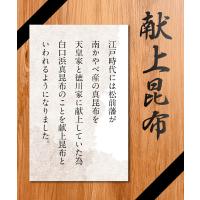 献上昆布
江戸時代には松前藩が
南かやべ産の真昆布を
天皇家と徳川家に献上していた為
白口浜真昆布のことを献上昆布と
いわれるようになりました。